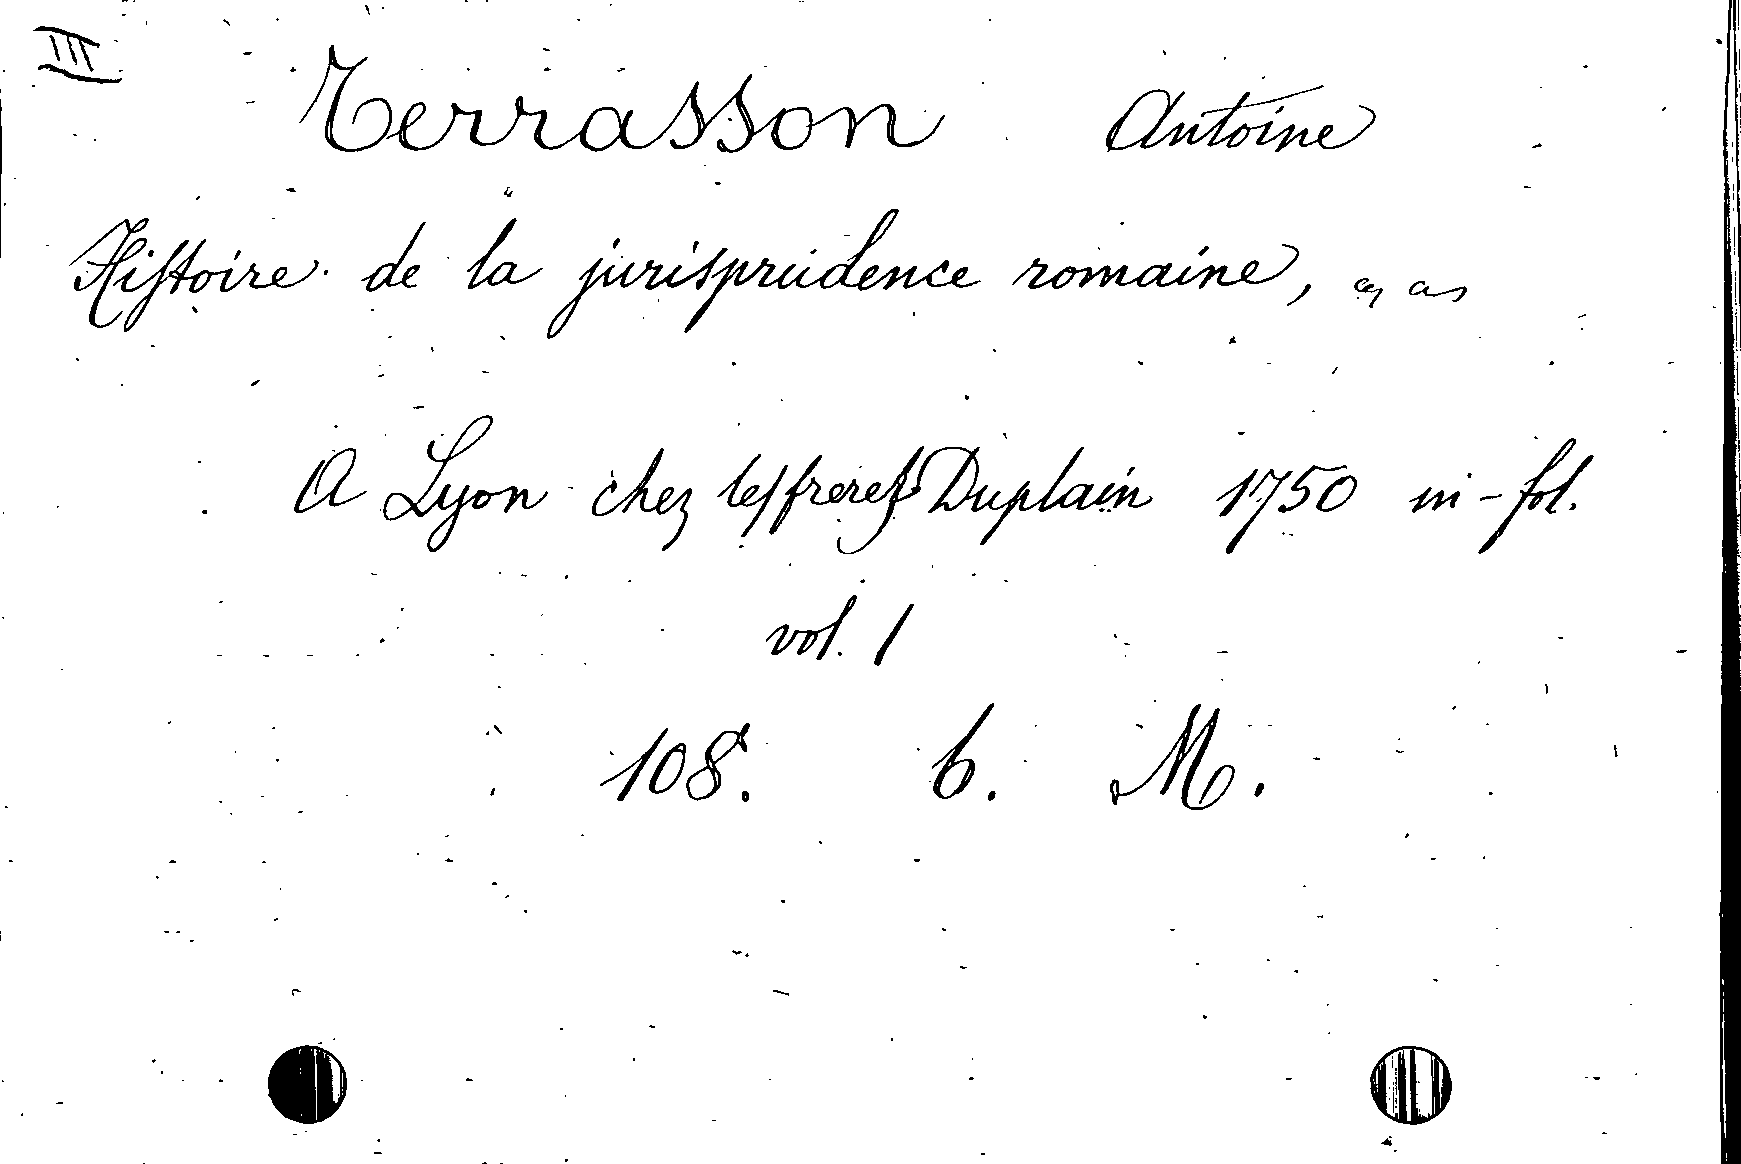 III
Terrasson Antoine
Histoire de la jurisprudence romaine,
A Lyon chez les freres Duplain 1750 in-fol.
vol. 1
108. 6. M.